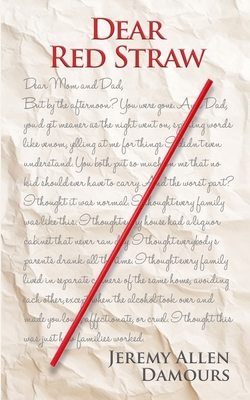 DEAR
RED STRAW
Dear Mom and Dad,
But by the afternoon? You were gone. And Dad,
you'd get meaner as the night went on, words
like venom, yelling at me for things I didn't even
understand. You both put so much on me that no
kid should ever have to carry. And the worst part?
I thought it was normal. I thought every family
was like this. I thought every house had a liquor
cabinet that never ran. I thought everybody's
parents drank all the time. I thought every family
lived in separate corners of the same home, avoiding
each other, except when the alcohol took over and
made you loud, affectionate, or cruel. I thought this
was just how families worked.
JEREMY ALLEN
DAMOURS